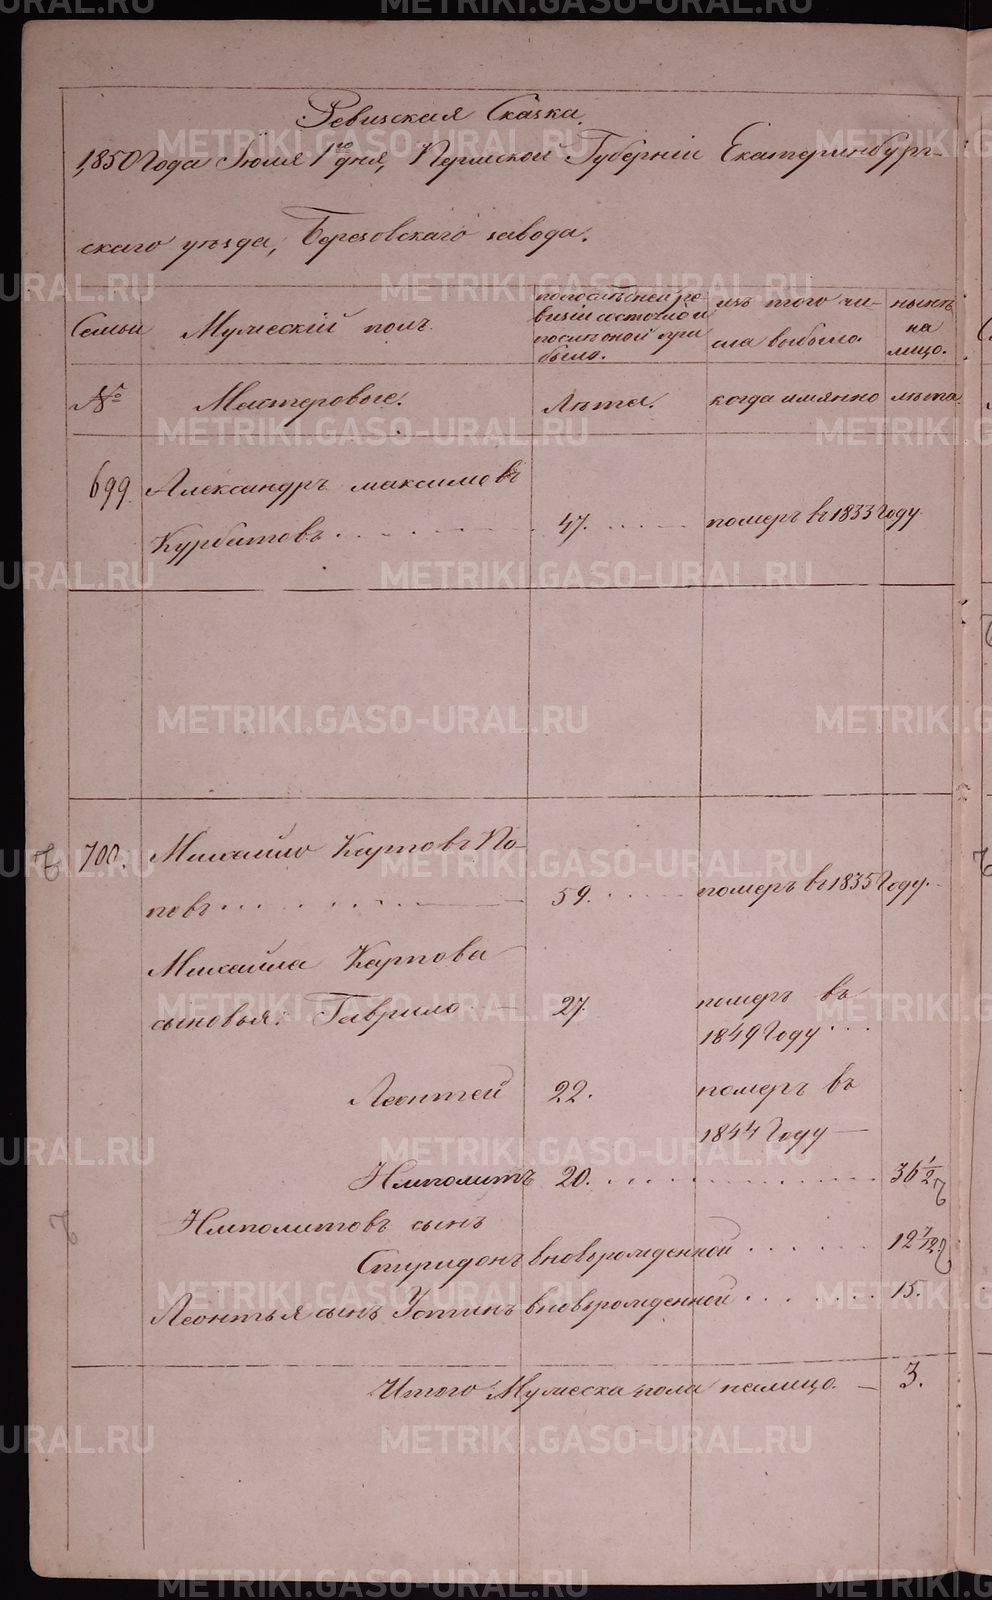 Ревизская Сказка.
1850 Года Июля 1го дня, Пермской Губерніи Екатеринбург-
скаго уѣзда, Березовскаго завода.
Семьи
Мужескій полъ.
по послѣдней ре
визіи состояло и
послѣ оной при
было.
изъ того чи-
сла выбыло.
нынѣ
на
лицо.
№
Мастеровые.
Лѣта.
когда имянно
лѣта.
699. Александръ максимовъ
Курбатовъ 47. померъ въ 1833 Году
700. Михайло Карповъ По-
повъ 59. померъ въ 1835 Году.
Михайла Карпова
сыновья: Гаврило 27. померъ въ
1849 Году
Леонтей 22. померъ въ
1844 Году
Ипполитъ 20. 36 1/2
Ипполитовъ сынъ
Спиридонъ вновьрожденной 12 7/12
Леонтья сынъ Устинъ вновьрожденной 15.
Итого Мужеска пола налицо. 3.
METRIKI.GASO-URAL.RU